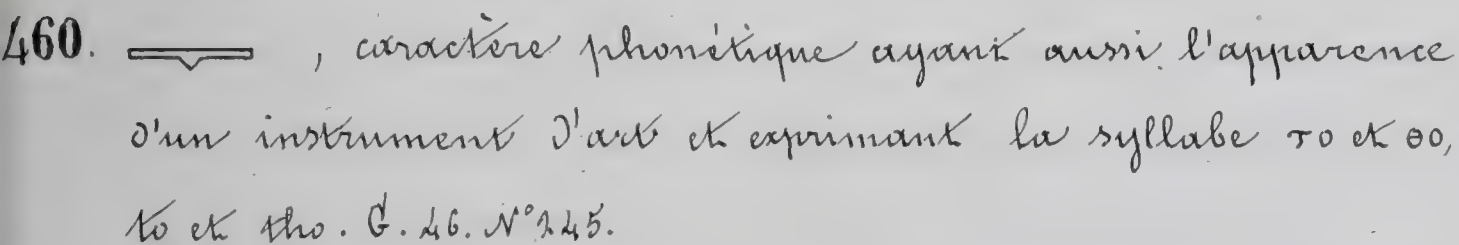 460. , caractère phonétique ayant aussi l'apparence
d'un instrument d'art et exprimant la syllabe то et ѳо,
to et tho. G. 46. N° 245.